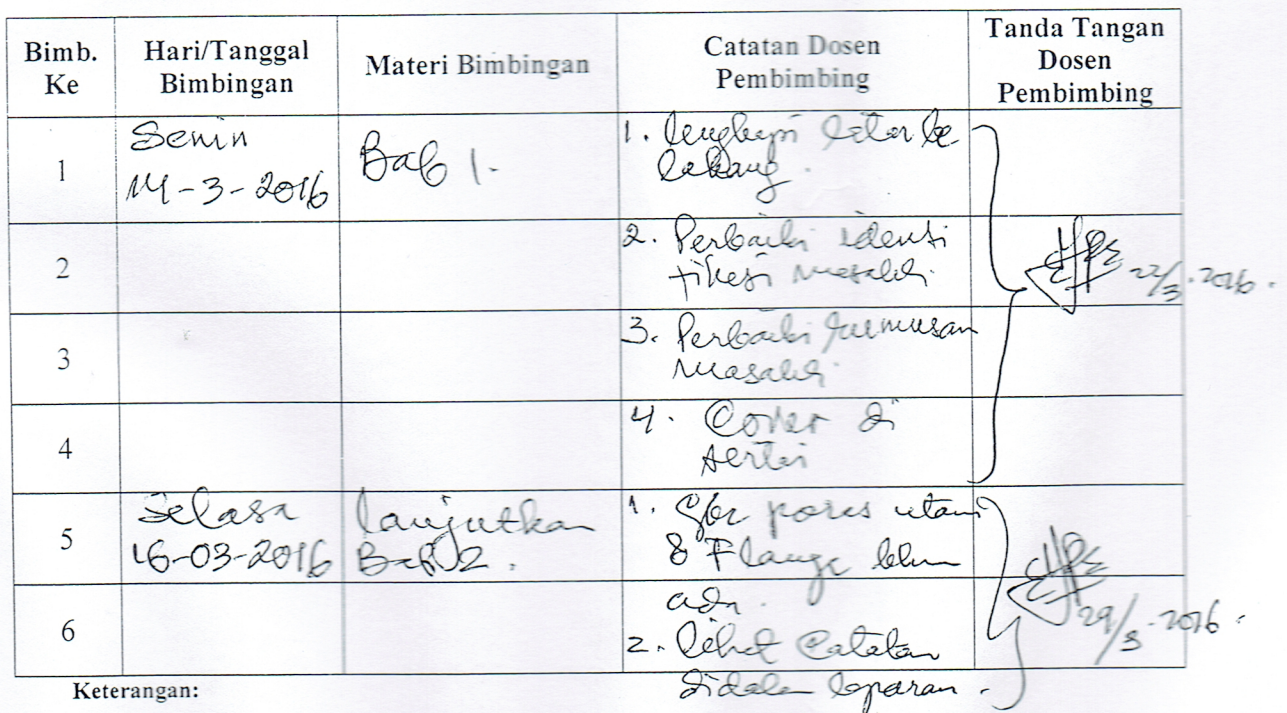 Bimb. Ke
Hari/Tanggal Bimbingan
Materi Bimbingan
Catatan Dosen Pembimbing
Tanda Tangan Dosen Pembimbing
1
Senin
14-3-2016
Bab 1.
1. lengkapi latar be
lakang.
2
2. Perbaiki identi
fikasi masalah.
22/3.2016.
3
3. Perbaiki rumusan
masalah.
4
4. Cover di
sertai
5
Selasa
16-03-2016
lanjutkan
Bab 2.
1. Gbr poros utama
& Flange belum
6
ada.
2. lihat Catatan
didalam laporan.
29/3.2016.
Keterangan: